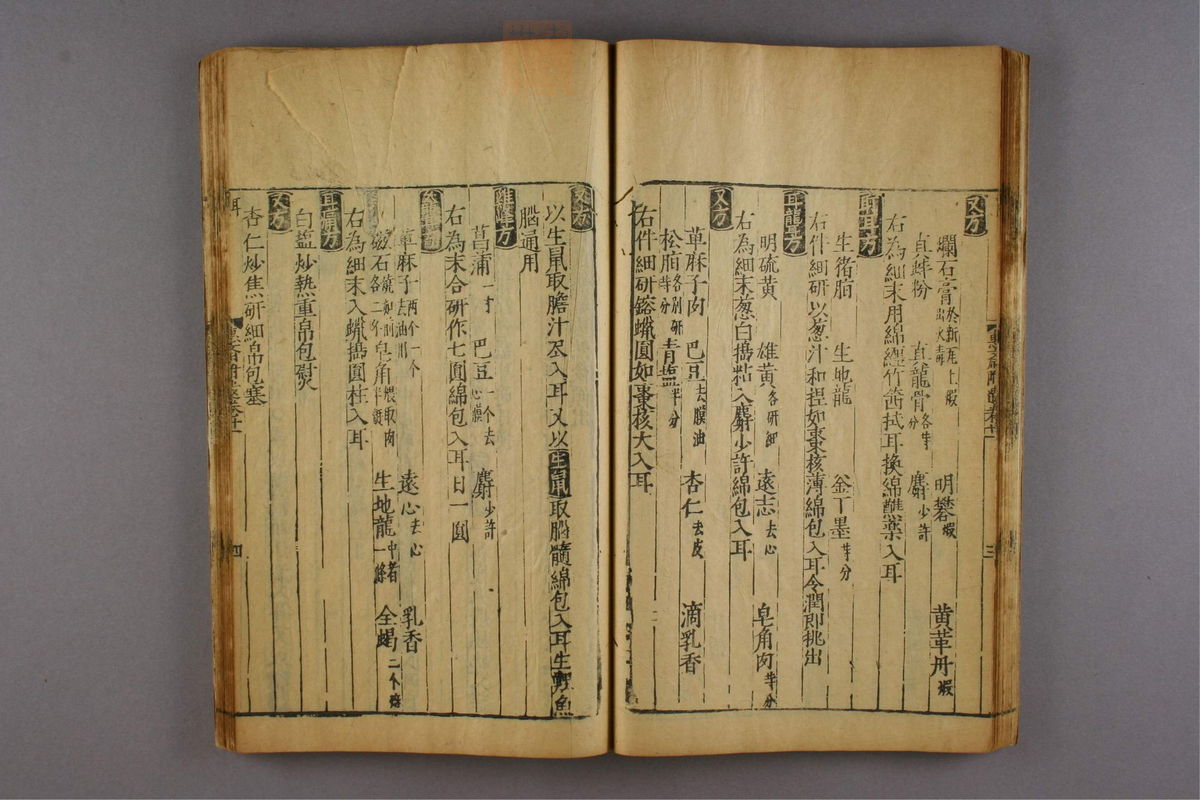 又方
爛石膏於新瓦上煅出火毒 明礬煅 黄革丹煅
真蚌粉 真龍骨各等分 麝少許
右為細末用綿纒竹 拭耳換綿蘸藥入耳
耳方
生猪脂 生地龍 釜下墨等分
右件細研以葱汁和捏如棗核薄綿包入耳令潤即挑出
耳聾方
明硫黄 雄黄各研細 遠志去心 皂角肉半分
右為細末葱白搗粘入麝少許綿包入耳
又方
萆麻子肉 巴豆去膜油 杏仁去皮 滴乳香
松脂各別研等分 青塩半分
右件細研鎔蠟圓如棗核大入耳
又方
以生鼠取膽汁 入耳又以生鼠取腦髓綿包入耳生鯉魚
腦通用
方
菖蒲一寸 巴豆一个去心膜 麝少許
右為末合研作七圓綿包入耳日一圓
萆麻子一両个去油用 遠心去心 乳香
磁石 各二分 皂角煨取肉半 生地龍中者一條 全蝎二个焙
右為細末入蠟搗圓柱入耳
耳痛方
白塩炒熱重帛包熨
又方
杏仁炒焦研細帛包塞
耳
三
四